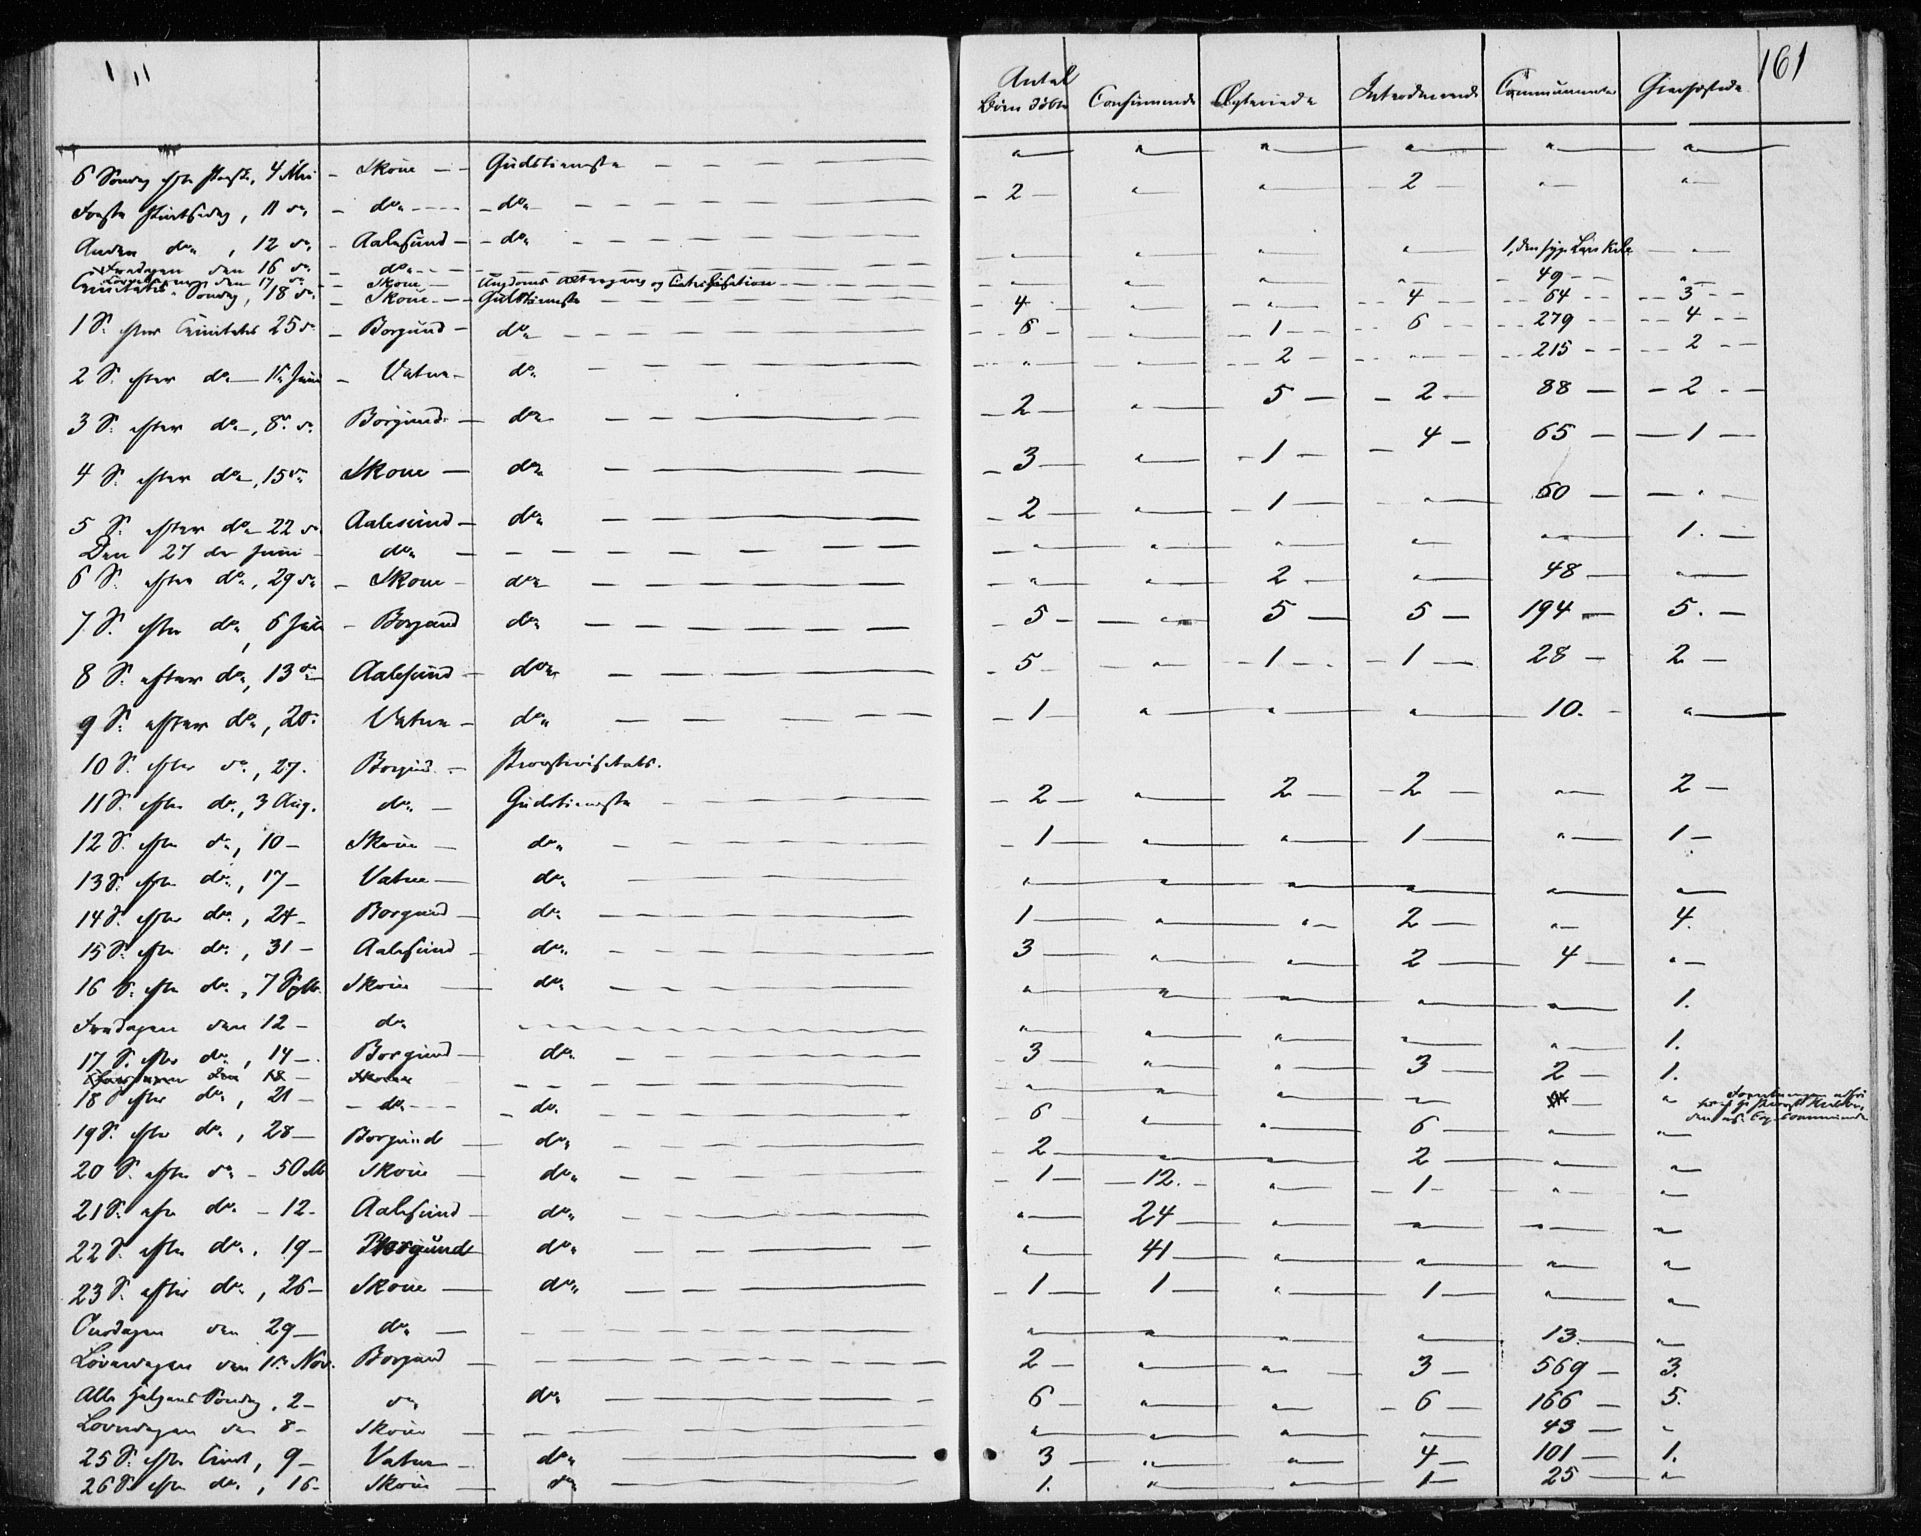 161
Antal Børn døbte Confirmerede Ægteviede Introducerede Communicanter Gienfæstede
6 Søndag efter Paaske, 4 Mai - Skoue - Gudstieneste " " " " " "
Første Pintsedag, 11 do - do - do 2 " " 2 " "
Anden do, 12 do - Aalesund - do " " 1, den syge
Fredagen den 16 do - do 49 "
Løverdagen den 17 do - Skoue - Ungdoms og Catechisation
Trinitatis Søndag, 18 do - Skoue - Gudstieneste 4 " " 4 64 3
1 S. efter Trinitatis 25 do - Borgund - do 6 " 1 6 279 4
2 S. efter do - 1ste Juni - Vatne - do " " 2 " 215 2
3 S. efter do, 8de do Borgund - do 2 " 5 2 88 2
4 S. efter do, 15 do Skoue - do 3 " 1 4 65 1
5 S. efter do 22 do Aalesund - do 2 " 1 " 60 "
Den 27 de Juni - do " " " " " 1.
6 S. efter do, 29 do - Skoue - do " " 2 " 48 "
7 S. efter do, 6 Juli - Borgund do 5 " 5 5 194 5.
8 S. efter do, 13 do Aalesund - do 5 " 1 1 28 2
9 S. efter do, 20. Vatne - do 1 " " " 10. "
10 S. efter do, 27. Borgund - Provstevisitats.
11 S. efter do, 3 Aug. do - Gudstieneste 2 " 2 2 " 2
12 S. efter do, 10 - Skoue - do 1 " " 1 " 1
13 S. efter do, 17 - Vatne - do " " " " " "
14 S. efter do, 24 - Borgund - do 1 " " 2 " 4.
15 S. efter do, 31 - Aalesund - do 3 " " 2 4 "
16 S. efter do, 7 Septb. Skoue - do " " " " " 1.
Fredagen den 12 - do " " " " " 1.
17 S. efter do, 14 - Borgund - do 3 " " 3 2 1.
den 18 - Skoue " " " " "
18 S. efter do, 21 - do - do 6 " " 6 " "
19 S. efter do, 28 - Borgund - do 2 " " 2 " "
20 S. efter do - 5 Octb Skoue - do 1 12. " 1 " "
21 S. efter do - 12 - Aalesund - do " 24 " " " "
22 S. efter do, 19 - Borgund - do " 41 " " " "
23 S. efter do, 26 - Skoue - do 1 1 " 1 " "
Onsdagen den 29 - do - " " " " 13 "
Løverdagen den 1ste Nov. Borgund - 2 " " 3 569 3.
Alle Helgens Søndag, 2 - do do 6 " " 6 166 5.
Løverdagen den 8 - Skoue - " " " " 43 "
25 S. efter Trinit, 9 - Vatne - do 3 " " 4 101 1.
26 S. efter do, 16 - Skoue - do 1. " " 1 25 "